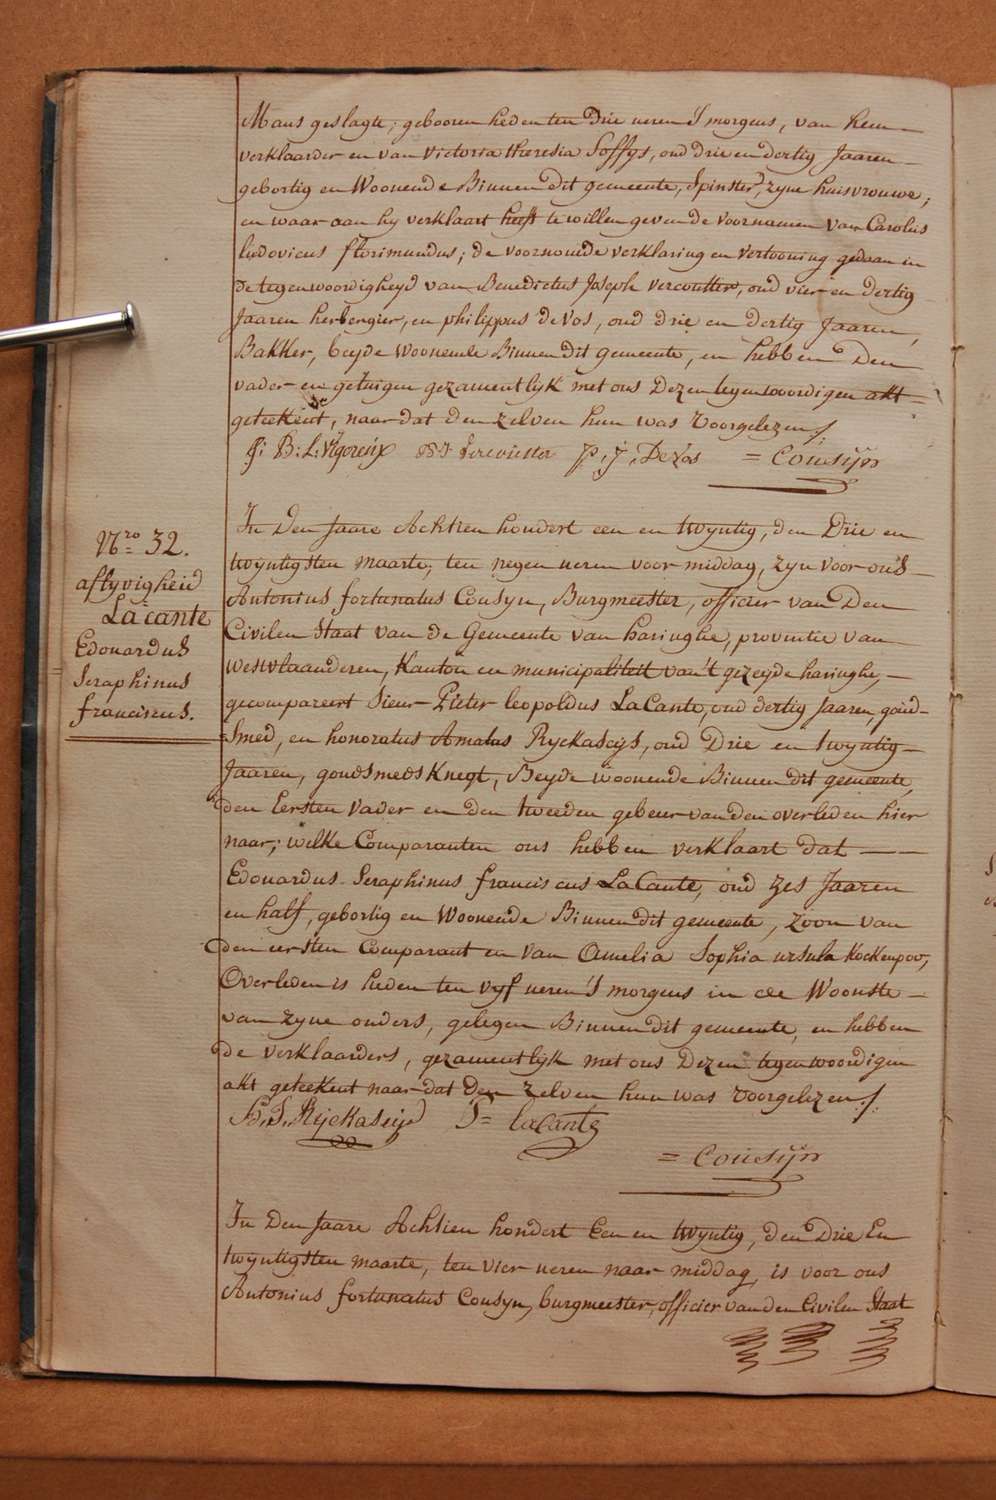 Mans geslagte; gebooren heden ten drie ueren S'morgens, van hem
verklaarder en van Victoria theresia Soffys, oud drie en dertig Jaaren
gebortig en Woonende Binnen dit gemeente, Spinster, zyne huisvrouwe;
en waar aan hy verklaart heeft te willen geven de voornamen van Carolus
ludovicus florimundus; de voornoemde verklaring en vertooning gedaan in
de tegenwoordigheyd van Benedictus Joseph vercoutter, oud vier en dertig
Jaaren herbergier, en philippus de Vos, oud drie en dertig Jaaren,
Bakker, beyde woonende Binnen dit gemeente, en hebben Den
vader en getuigen gezamentlyk met ons Dezen tegenwoordigen akt
geteekent, naar dat den zelven hun was voorgelezen /.
J: B: L: Vigoreux P: J: Devos = Cousijn
Nro 32.
aflyvigheid
Lacante
Edouardus
Seraphinus
franciscus.
In Den Jaare Achtien hondert een en twyntig, den Drie en
twyntigsten maarte, ten negen ueren voor middag, zyn voor ons
Antonius fortunatus Cousyn, Burgmeester, officier van Den
Civilen Staat van de Gemeente van haringhe, provintie van
westvlaanderen, Kanton en municipaliteit van't gezeyde haringhe,
gecompareert Sieur Pieter leopoldus LaCante, oud dertig Jaaren, goud-
Smed, en honoratus Amatus Ryckaseys, oud Drie en twyntig
Jaaren, goudsmeds Knegt, Beyde woonende Binnen dit gemeente,
den Eersten vader en den tweeden gebeur van den overleden hier
naar; welke Comparanten ons hebben verklaart dat
Edouardus Seraphinus franciscus LaCante, oud zes Jaaren
en half, gebortig en Woonende Binnen dit gemeente, zoon van
den eersten Comparant en van Amelia Sophia ursula Kockenpoo,
Overleden is heden ten vyf ueren 'S morgens in de Woonste
van zyne ouders, gelegen Binnen dit gemeente, en hebben
de verklaarders, gezamentlyk met ons Dezen tegenwoordigen
akt geteekent naar dat Den zelven hun was voorgelezen /.
Ryckaseys P= laCante
= Cousijn
In Den Jaare Achtien hondert Een en twyntig, den Drie En
twyntigsten maarte, ten vier ueren naar middag, is voor ons
Antonius fortunatus Cousyn, burgmeester, officier van den Civilen Staat